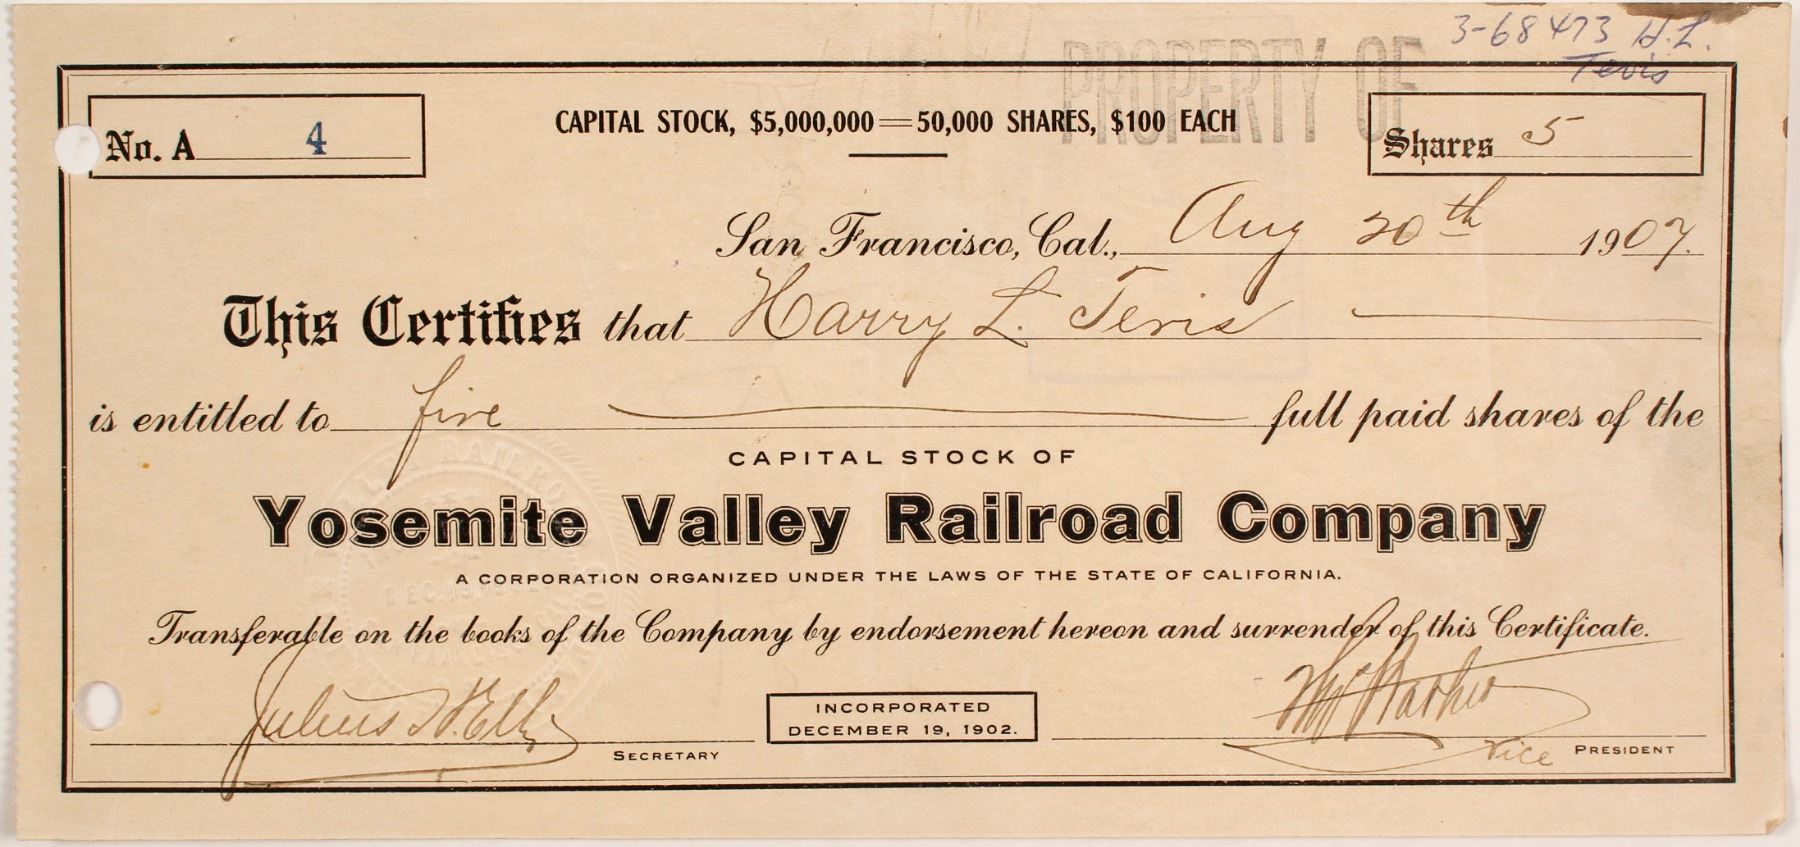 3-68473 H.L.
Tevis
PROPERTY OF
No. A 4
CAPITAL STOCK, $5,000,000=50,000 SHARES, $100 EACH
Shares 5
San Francisco, Cal., Aug 20th 1907.
This Certifies that Harry L. Tevis
is entitled to five full paid shares of the
CAPITAL STOCK OF
Yosemite Valley Railroad Company
A CORPORATION ORGANIZED UNDER THE LAWS OF THE STATE OF CALIFORNIA.
Transferable on the books of the Company by endorsement hereon and surrender of this Certificate.
Julius
INCORPORATED
DECEMBER 19, 1902.
SECRETARY
Vice PRESIDENT